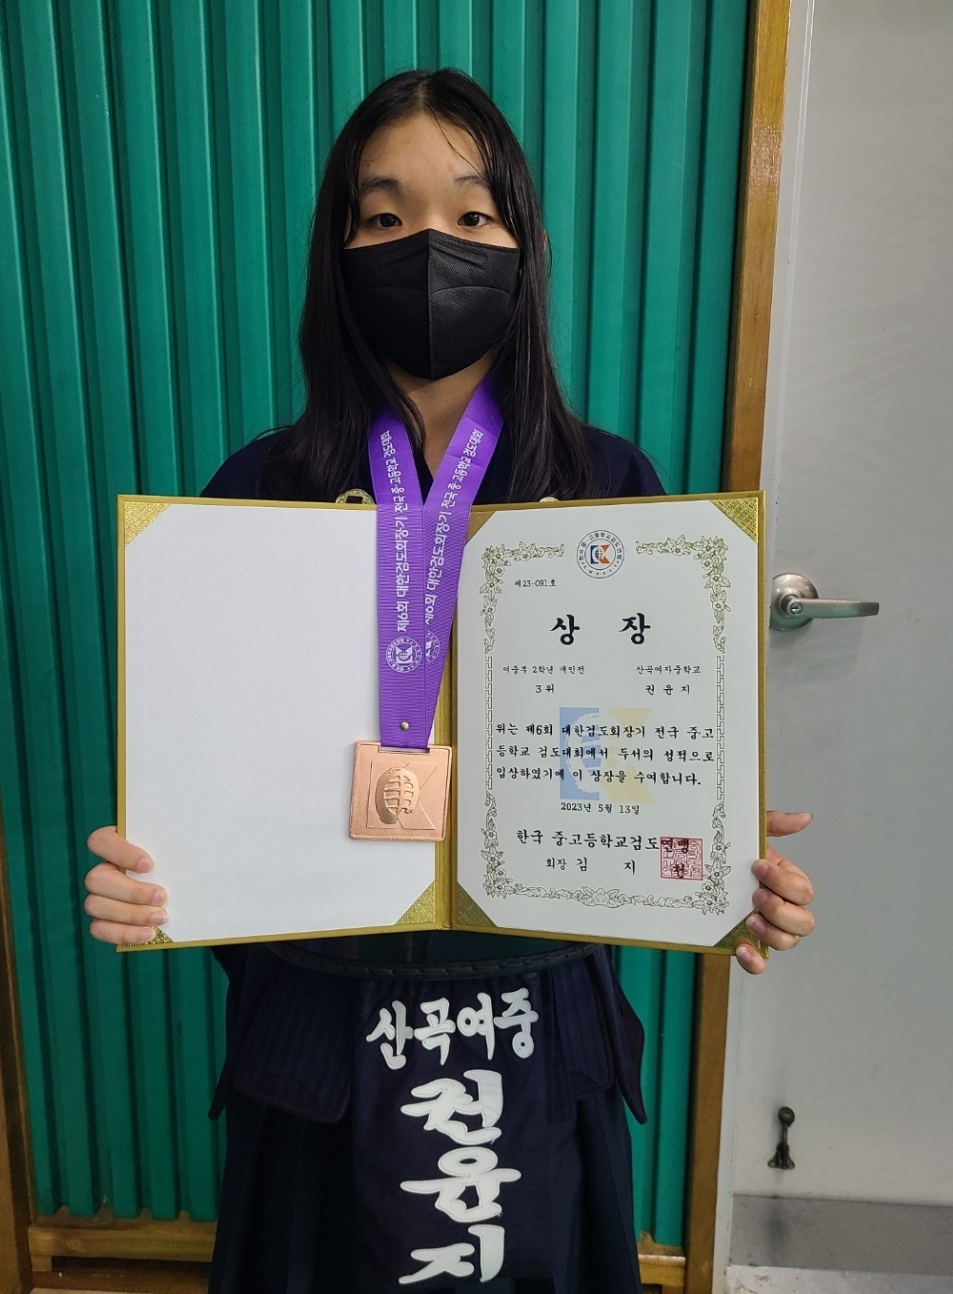 제6회 대한검도회장기 전국 중·고등학교 검도대회
제6회 대한검도회장기 전국 중·고등학교 검도대회
제23-091호
상 장
여중부 2학년 개인전
3위
산곡여자중학교
권윤지
위는 제6회 대한검도회장기 전국 중·고
등학교 검도대회에서 두서의 성적으로
입상하였기에 이 상장을 수여합니다.
2023년 5월 13일
한국 중·고등학교검도연맹
회장 김 지
산곡여중
권윤지